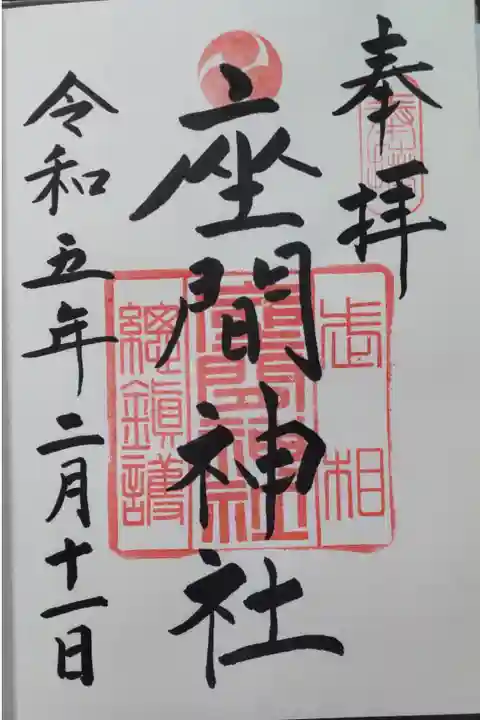 奉拝
武相
座間神社
座間神社
總鎮護
令和五年二月十一日